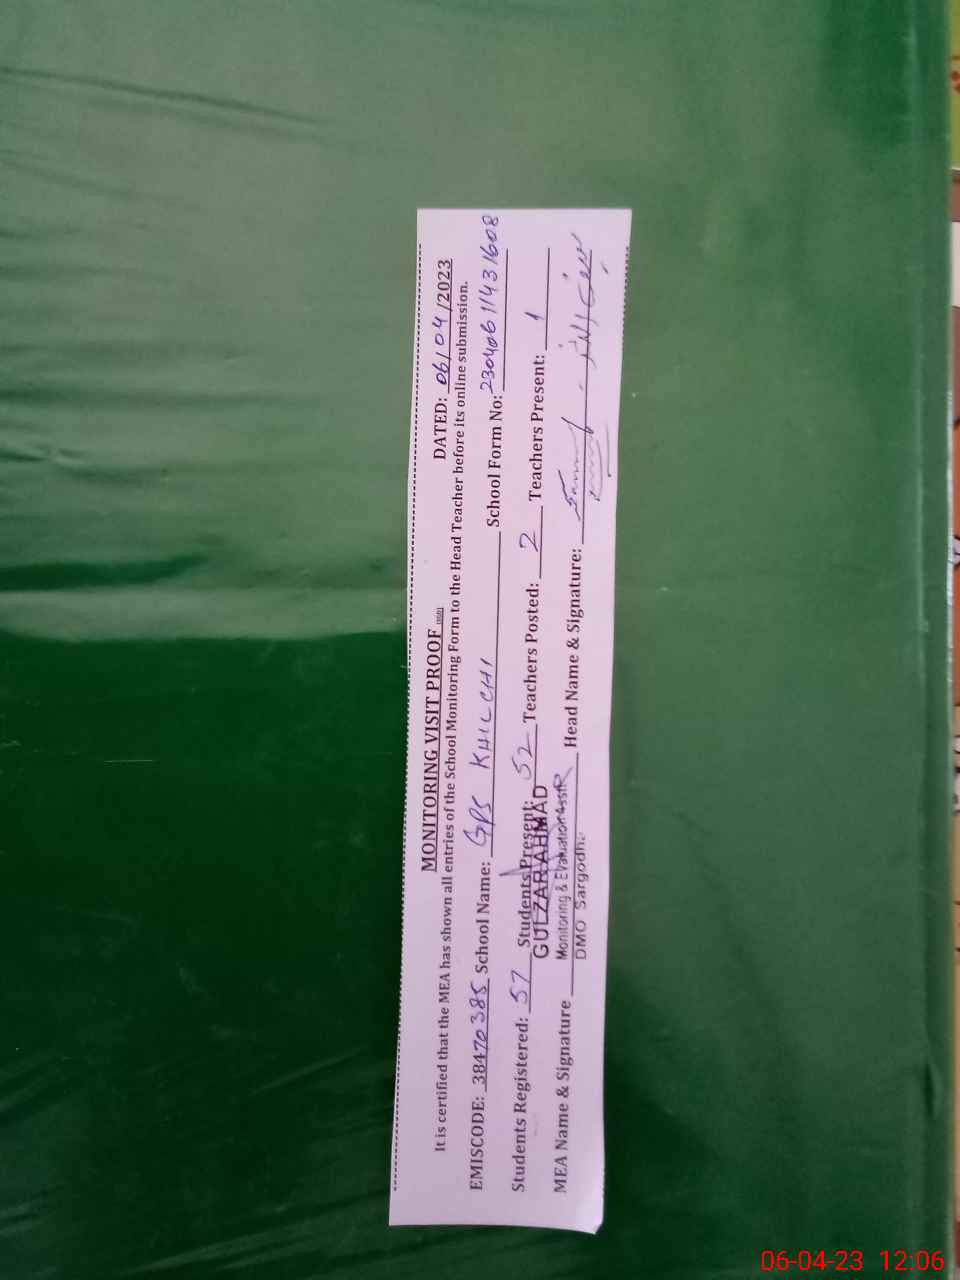 MONITORING VISIT PROOF DATED: 06/04/2023
It is certified that the MEA has shown all entries of the School Monitoring Form to the Head Teacher before its online submission.
EMISCODE: 38470385 School Name: GPS KHILCHI School Form No: 230406114316​08
Students Registered: 57 Students Present: 52 Teachers Posted: 2 Teachers Present: 1
GULZAR AHMAD
MEA Name & Signature Head Name & Signature:
Monitoring & Evaluation Asstt
DMO Sargodha
06-04-23 12:06